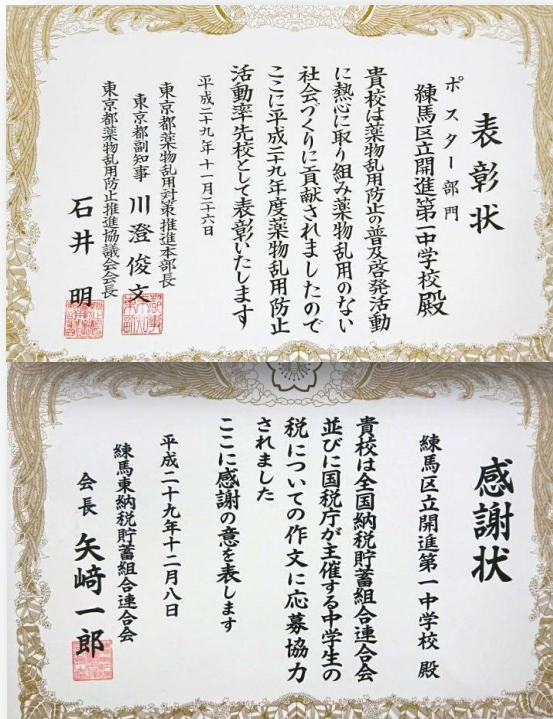 表彰状
ポスター部門
練馬区立開進第一中学校殿
貴校は薬物乱用防止の普及啓発活動
に熱心に取り組み薬物乱用のない
社会づくりに貢献されましたので
ここに平成二十九年度薬物乱用防止
活動率先校として表彰いたします
平成二十九年十一月二十六日
東京都薬物乱用対策推進本部長
東京都副知事 川澄俊文
東京都薬物乱用防止推進協議会会長
石井 明
感謝状
練馬区立開進第一中学校 殿
貴校は全国納税貯蓄組合連合会
並びに国税庁が主催する中学生の
税についての作文に応募協力
されました
ここに感謝の意を表します
平成二十九年十二月八日
練馬東納税貯蓄組合連合会
会長 矢崎一郎